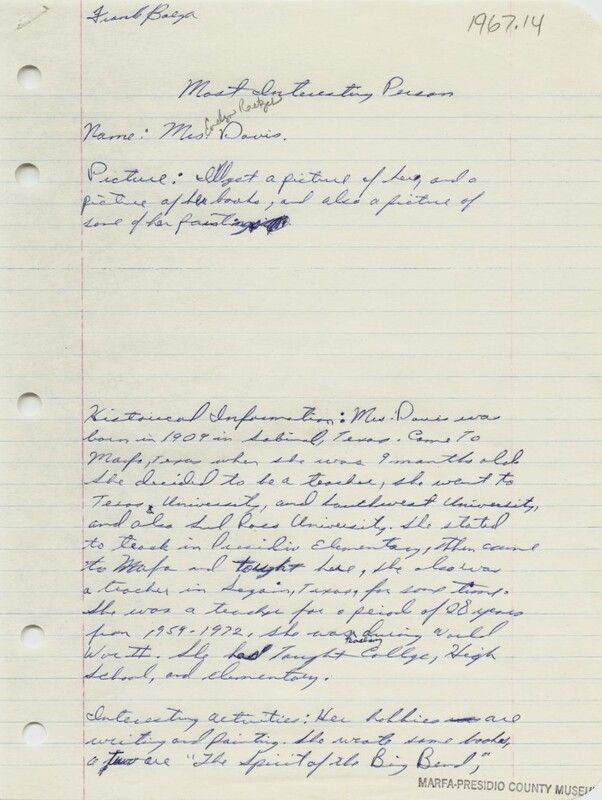 Frank Baeza
1967.14
Most Interesting Person
Name: Mrs. Davis.
Picture: I'll get a picture of her, and a
picture of her books, and also a picture of
some of her paintings
Historical Information: Mrs. Davis was
born in 1904 in Sabinal, Texas. Came To
Marfa, Texas when she was 9 months old.
She decided to be a teacher, she went to
Texas University, and Southwest University,
and also Sul Ross University. She stated
to teach in Presidio Elementary, then came
to Mafa and taught here, she also was
a teacher in Segain, Texas, for some time.
She was a teacher for a period of 28 years
from 1959-1972. She was during World
War th. She had Taught College, High
School, and elementary.
Interesting activities: Her hobbies are
writing and painting. She wrote some books,
a two are "The Spirit of the Big Bend,"
MARFA-PRESIDIO COUNTY MUSEUM